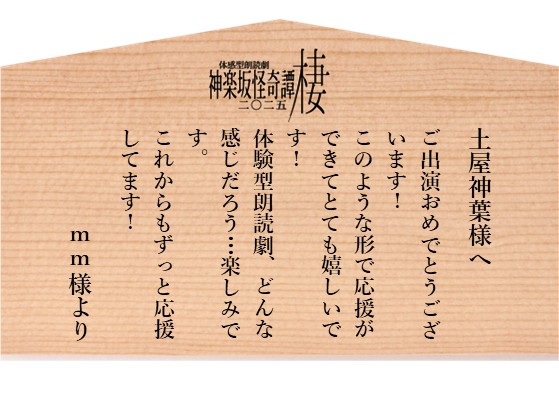 体感型朗読劇
神楽坂怪奇譚
二〇二五
棲
土屋神葉様へ
ご出演おめでとうござ
います！
このような形で応援が
できてとても嬉しいで
す！
体験型朗読劇、どんな
感じだろう…楽しみで
す。
これからもずっと応援
してます！
ｍｍ様より